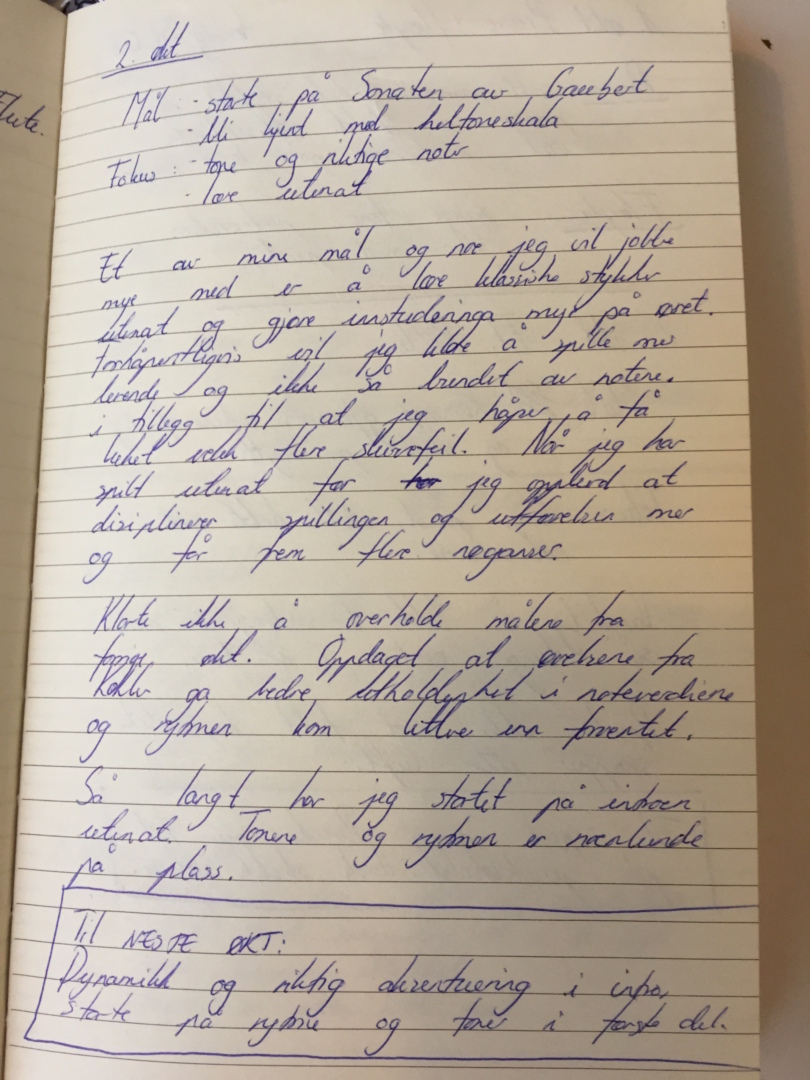 flute.
2. økt
Mål: - starte på Sonaten av Gaubert
- bli kjent med heltoneskala
Fokus: - tone og riktige noter
- lære utenat
Et av mine mål og noe jeg vil jobbe
mye med er å lære klassiske stykker
utenat og gjøre innstuderinga mye på øret.
Forhåpentligvis vil jeg klare å spille mer
levende og ikke så bundet av notene.
i tillegg til at jeg håper å få
luket vekk flere skrivefeil. Når jeg har
spilt utenat før har jeg opplevd at
disiplinerer spillingen og utførelsen mer
og får frem flere nyanser.
Klarte ikke å overholde målene fra
forrige økt. Oppdaget at øvelsene fra
ga bedre utholdenhet i noteverdiene
og rytmen kom lettere enn forventet.
Så langt har jeg startet på introen
utenat. Tonene og rytmen er nærlunde
på plass.
Til NESTE ØKT:
Dynamikk og riktig aksentuering i intro,
starte på rytme og toner i første del.